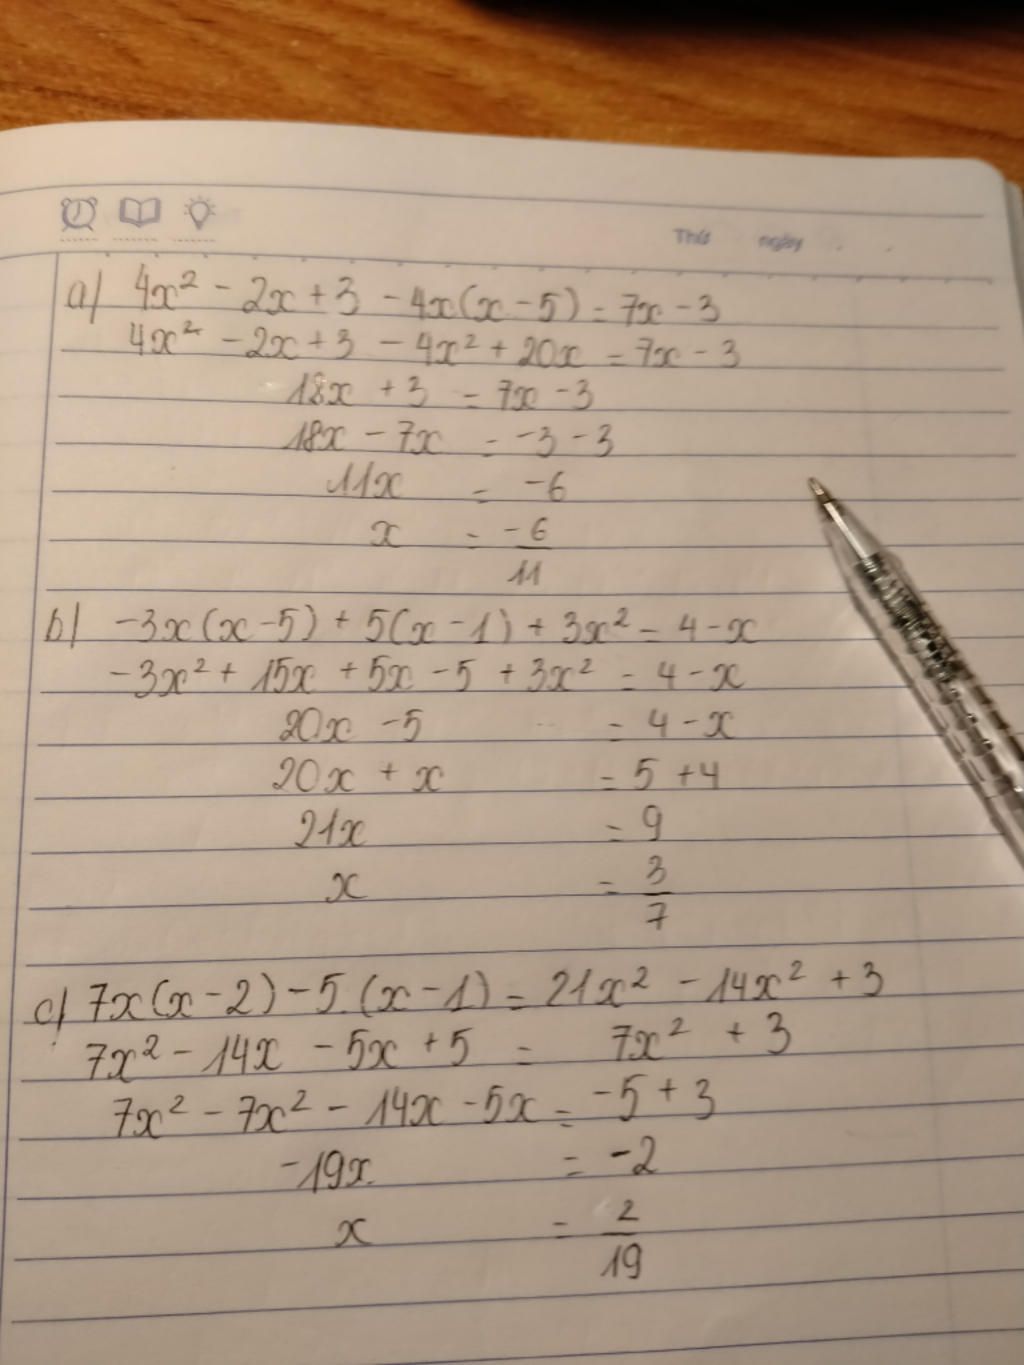 Thứ ngày
a) 4x² - 2x + 3 - 4x(x - 5) = 7x - 3
4x² - 2x + 3 - 4x² + 20x = 7x - 3
18x + 3 = 7x - 3
18x - 7x = -3 - 3
11x = -6
x = -6/11
b) -3x(x - 5) + 5(x - 1) + 3x² = 4 - x
-3x² + 15x + 5x - 5 + 3x² = 4 - x
20x - 5 = 4 - x
20x + x = 5 + 4
21x = 9
x = 3/7
c) 7x(x - 2) - 5.(x - 1) = 21x² - 14x² + 3
7x² - 14x - 5x + 5 = 7x² + 3
7x² - 7x² - 14x - 5x = -5 + 3
-19x = -2
x = 2/19